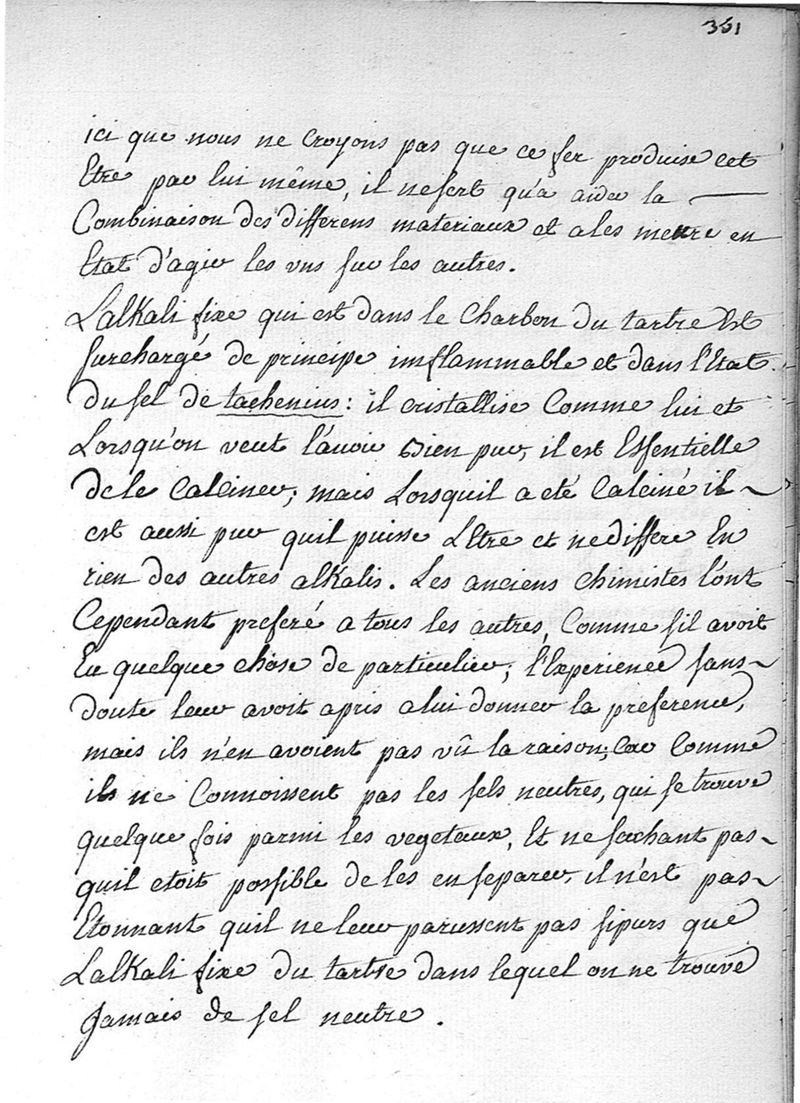 351
ici que nous ne croyons pas que ce fer produise cet
Etre par lui même, il ne sert qu'a aider la
Combinaison des differens materiaux et a les mettre en
Etat d'agir les uns sur les autres.
Lalkali fixe qui est dans le charbon du tartre Est
surchargé de principe imflammable et dans l'Etat
du sel de tachenius: il cristallise Comme lui et
Lorsqu'on veut l'avoir Bien pur, il est Essentielle
de le Calciner; mais Lorsquil a eté Calciné il
est aussi pur quil puisse LEtre et ne differe En
rien des autres alkalis. Les anciens chimistes l'ont
Cependant preferé a tous les autres, Comme sil avoit
Eu quelque chose de particulier; l'Experience sans
doute leur avoit apris a lui donner la preference,
mais ils n'en avoient pas vû la raison; Car Comme
ils ne Connoissent pas les sels neutres, qui se trouve
quelque fois parmi les vegetaux, Et ne sachant pas
quil etoit possible de les en separer, il n'est pas
Etonnant quil ne leur parussent pas si purs que
Lalkali fixe du tartre dans lequel on ne trouve
Jamais de sel neutre.